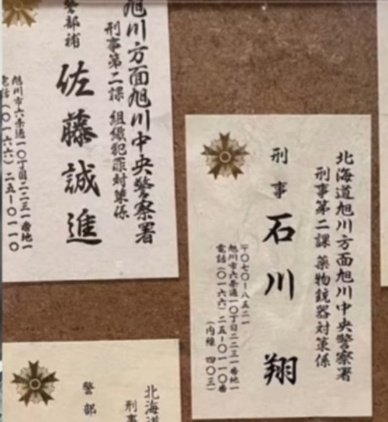 旭川方面旭川中央警察署
刑事第二課 組織犯罪対策係
警部補
佐藤誠進
旭川市六条通一〇丁目二二三一番地一
電話(〇一六六)二五-〇一一〇
北海道旭川方面旭川中央警察署
刑事第二課 薬物銃器対策係
刑事
石川 翔
〒〇七〇-八五二一
旭川市六条通一〇丁目二二三一番地一
電話(〇一六六)二五-〇一一〇番
(内線 四〇三)
北海道
刑事
警部